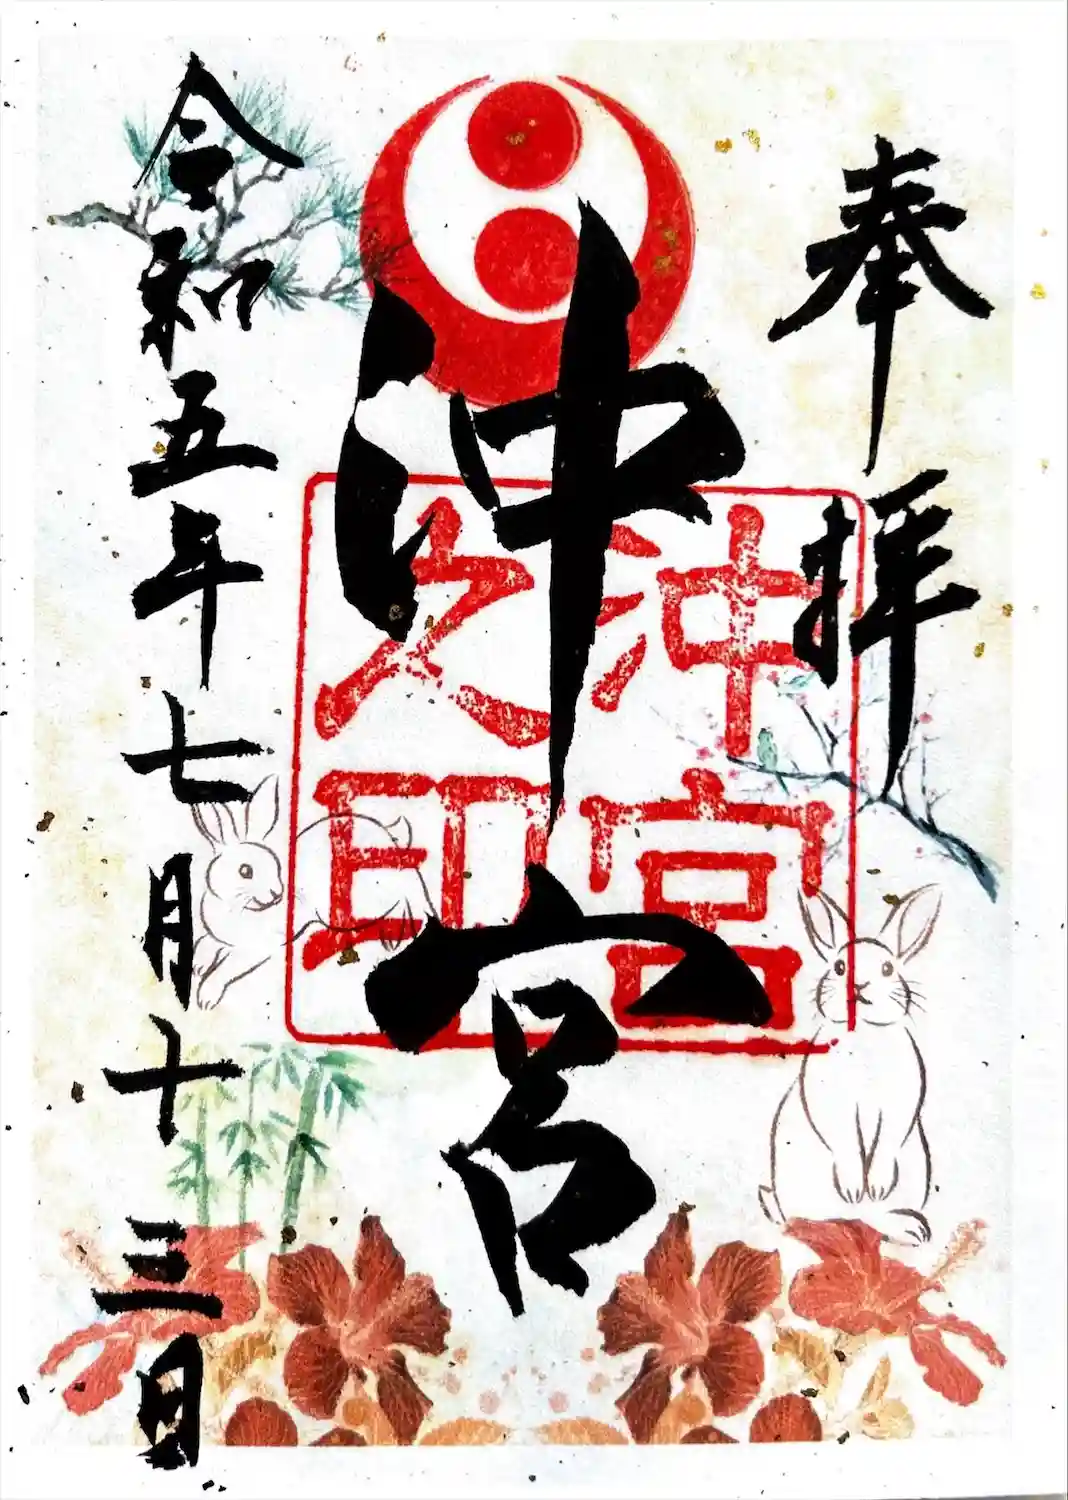 奉拝
沖宮
沖宮
之印
令和五年七月十三日